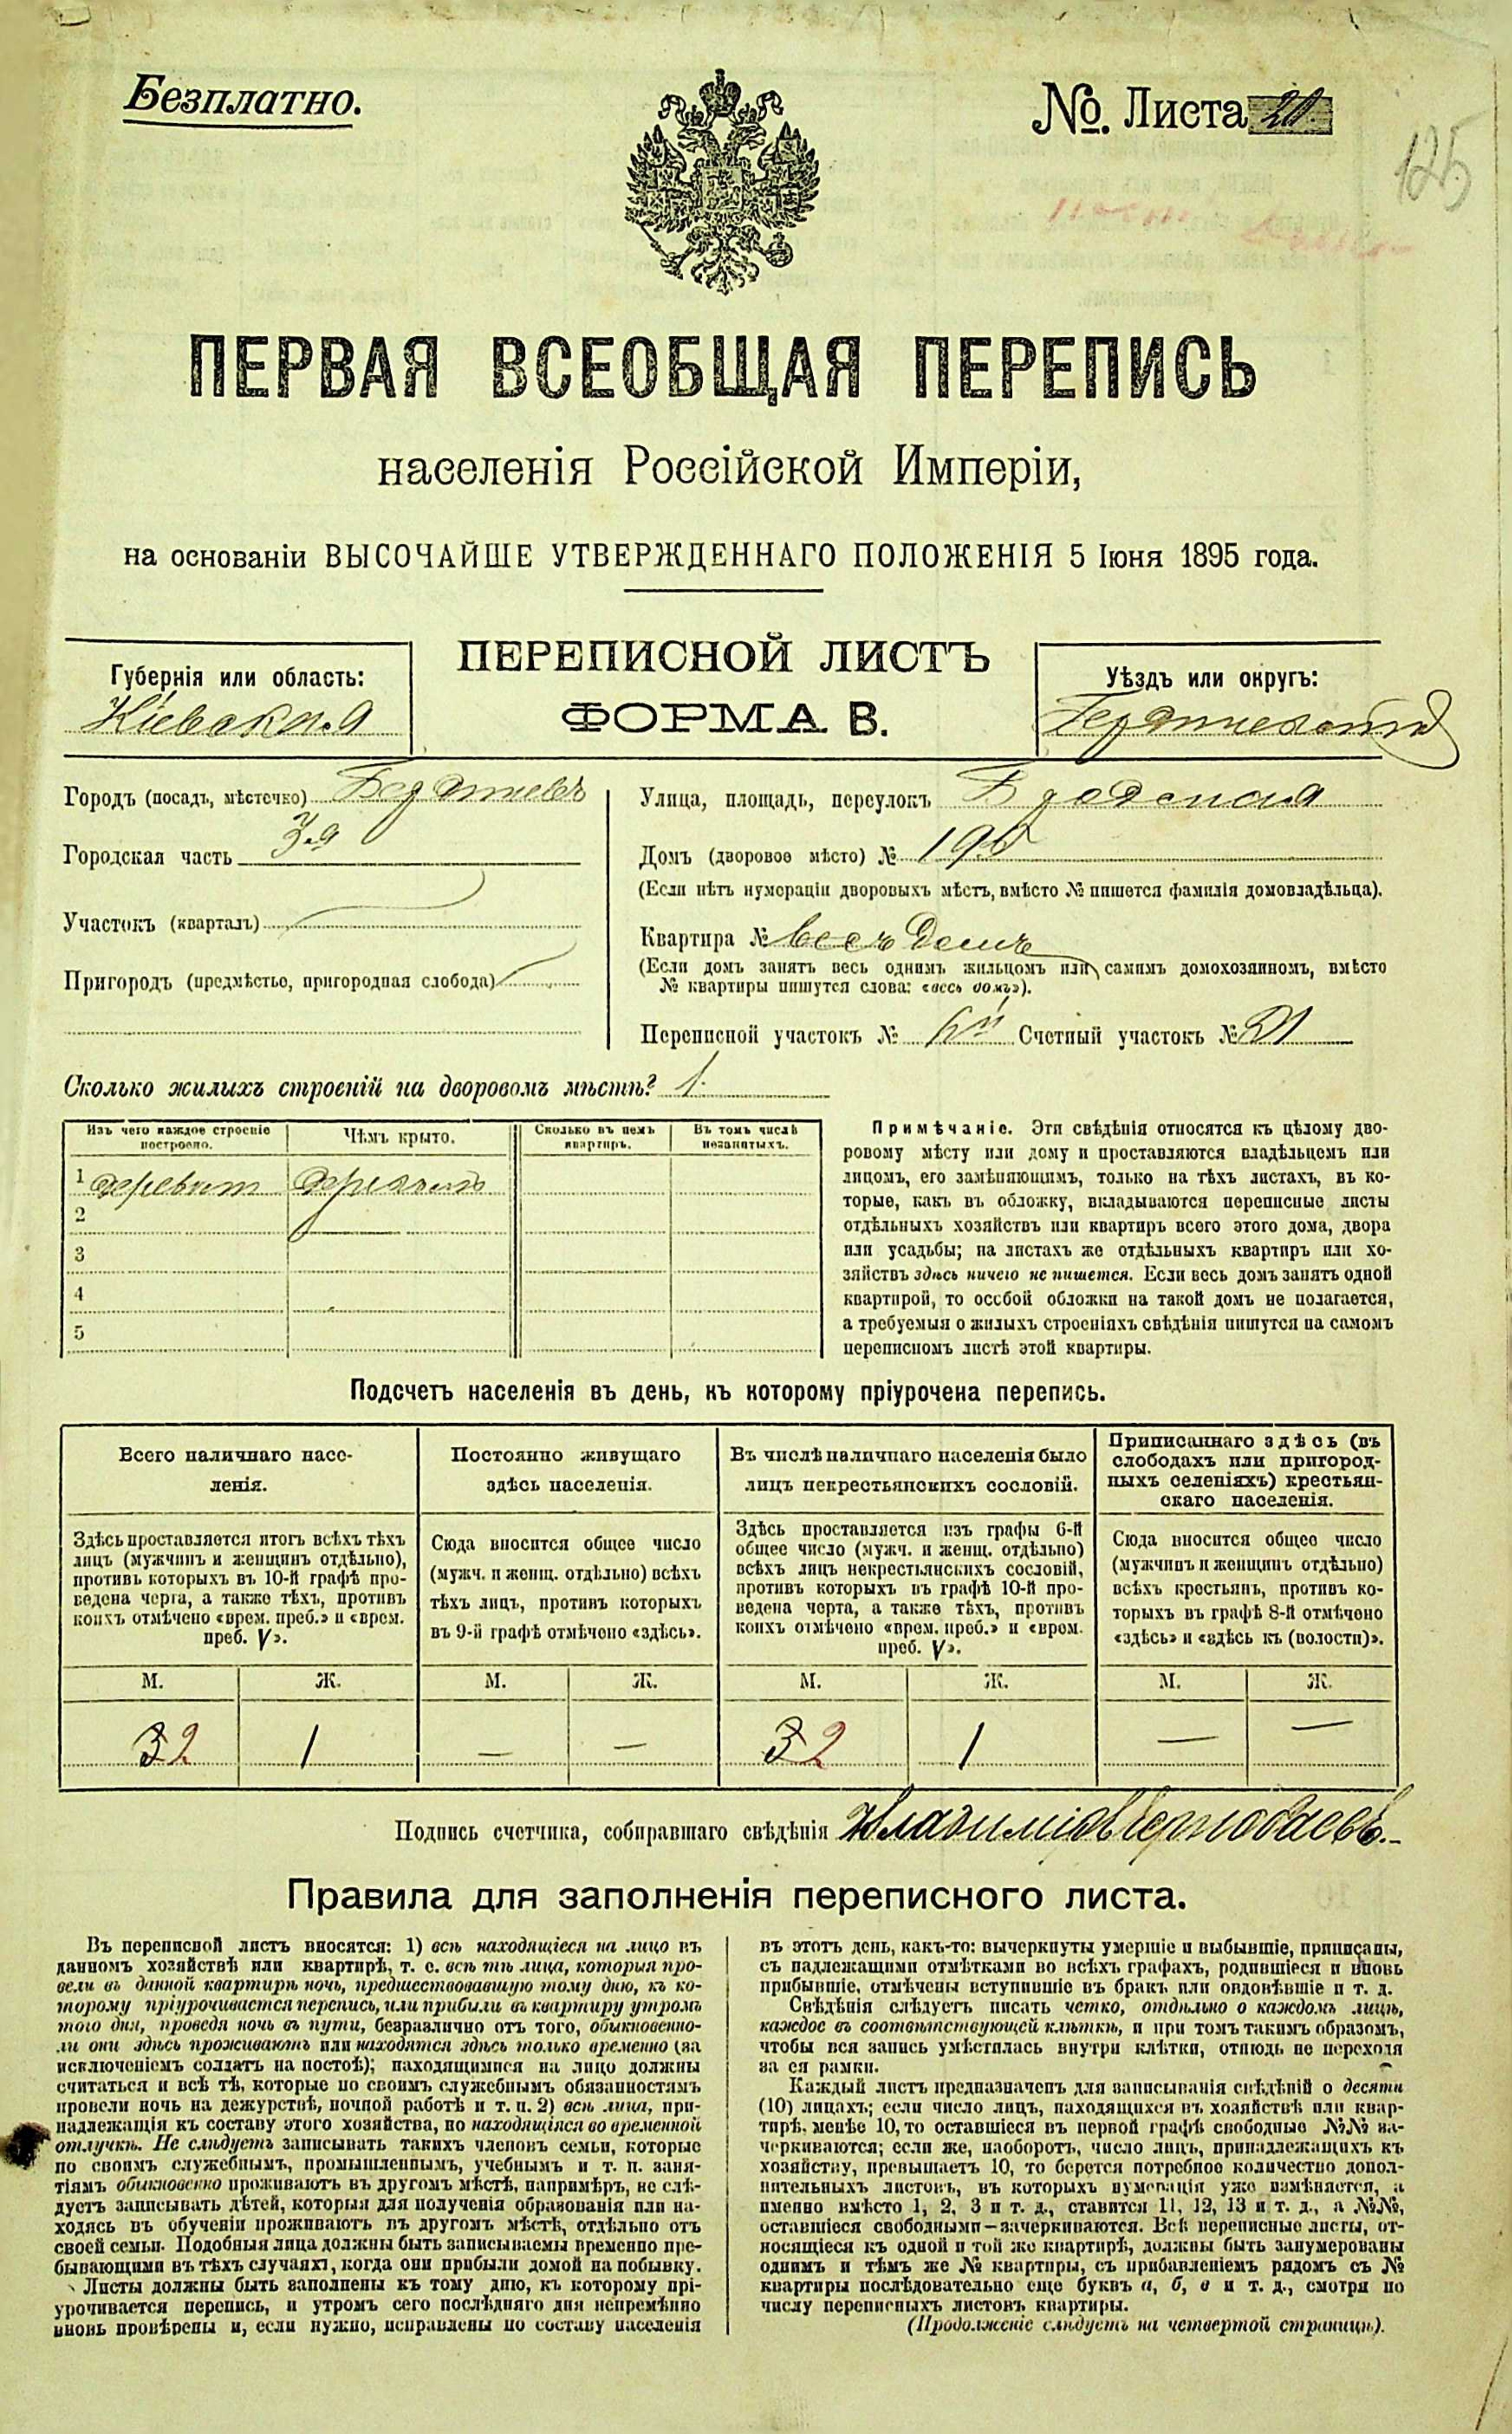 Безплатно.
№. Листа 20.
125
ПЕРВАЯ ВСЕОБЩАЯ ПЕРЕПИСЬ
населенія Россійской Имперіи,
на основаніи ВЫСОЧАЙШЕ УТВЕРЖДЕННАГО ПОЛОЖЕНІЯ 5 Іюня 1895 года.
ПЕРЕПИСНОЙ ЛИСТЪ
ФОРМА В.
Губернія или область:
Кіевская
Уѣздъ или округъ:
Бердичевскій
Городъ (посадъ, мѣстечко) Бердичевъ
Городская часть 3-я
Участокъ (кварталъ)
Пригородъ (предмѣстье, пригородная слобода)
Улица, площадь, переулокъ Бродская
Домъ (дворовое мѣсто) №
(Если нѣтъ нумораціи дворовыхъ мѣстъ, вмѣсто № пишется фамилія домовладѣльца).
Квартира № весь домъ
(Если домъ занятъ весь однимъ жильцомъ или самимъ домохозяиномъ, вмѣсто
№ квартиры пишутся слова: «весь домъ»).
Переписной участокъ № 6й Счетный участокъ № 21
Сколько жилыхъ строеній на дворовомъ мѣстѣ? 1.
Изъ чего каждое строеніе построено.
Чѣмъ крыто.
Сколько въ немъ квартиръ.
Въ томъ числѣ незанятыхъ.
1
2
3
4
5
Примѣчаніе. Эти свѣдѣнія относятся къ цѣлому дво-
ровому мѣсту или дому и проставляются владѣльцемъ или
лицомъ, его замѣняющимъ, только на тѣхъ листахъ, въ ко-
торые, какъ въ обложку, вкладываются переписные листы
отдѣльныхъ хозяйствъ или квартиръ всего этого дома, двора
или усадьбы; на листахъ же отдѣльныхъ квартиръ или хо-
зяйствъ здѣсь ничего не пишется. Если весь домъ занятъ одной
квартирой, то особой обложки на такой домъ не полагается,
а требуемыя о жилыхъ строеніяхъ свѣдѣнія пишутся на самомъ
переписномъ листѣ этой квартиры.
Подсчетъ населенія въ день, къ которому пріурочена перепись.
Всего наличнаго насе-
ленія.
Здѣсь проставляется итогъ всѣхъ тѣхъ
лицъ (мужчинъ и женщинъ отдѣльно),
противъ которыхъ въ 10-й графѣ про-
ведена черта, а также тѣхъ, противъ
коихъ отмѣчено «врем. преб.» и «врем.
преб. V».
М. Ж.
3 2 1
Постоянно живущаго
здѣсь населенія.
Сюда вносится общее число
(мужч. и женщ. отдѣльно) всѣхъ
тѣхъ лицъ, противъ которыхъ
въ 9-й графѣ отмѣчено «здѣсь».
М. Ж.
— —
Въ числѣ наличнаго населенія было
лицъ некрестьянскихъ сословій.
Здѣсь проставляется изъ графы 6-й
общее число (мужч. и женщ. отдѣльно)
всѣхъ лицъ некрестьянскихъ сословій,
противъ которыхъ въ графѣ 10-й про-
ведена черта, а также тѣхъ, противъ
коихъ отмѣчено «врем. преб.» и «врем.
преб. V».
М. Ж.
3 2 1
Приписаннаго здѣсь (въ
слободахъ или пригород-
ныхъ селеніяхъ) крестьян-
скаго населенія.
Сюда вносится общее число
(мужчинъ и женщинъ отдѣльно)
всѣхъ крестьянъ, противъ ко-
торыхъ въ графѣ 8-й отмѣчено
«здѣсь» и «здѣсь къ (волости)».
М. Ж.
— —
Подпись счетчика, собиравшаго свѣдѣнія Владиміръ
Правила для заполненія переписного листа.
Въ переписной листъ вносятся: 1) всѣ находящіеся на лицо въ
данномъ хозяйствѣ или квартирѣ, т. е. всѣ тѣ лица, которыя про-
вели въ данной квартирѣ ночь, предшествовавшую тому дню, къ ко-
торому пріурочивается перепись, или прибыли въ квартиру утромъ
того дня, проведя ночь въ пути, безразлично отъ того, обыкновенно-
ли они здѣсь проживаютъ или находятся здѣсь только временно (за
исключеніемъ солдатъ на постоѣ); находящимися на лицо должны
считаться и всѣ тѣ, которые по своимъ служебнымъ обязанностямъ
провели ночь на дежурствѣ, ночной работѣ и т. п. 2) всѣ лица, при-
надлежащія къ составу этого хозяйства, но находящіяся во временной
отлучкѣ. Не слѣдуетъ записывать такихъ членовъ семьи, которые
по своимъ служебнымъ, промышленнымъ, учебнымъ и т. п. заня-
тіямъ обыкновенно проживаютъ въ другомъ мѣстѣ, напримѣръ, не слѣ-
дуетъ записывать дѣтей, которыя для полученія образованія или на-
ходясь въ обученіи проживаютъ въ другомъ мѣстѣ, отдѣльно отъ
своей семьи. Подобныя лица должны быть записываемы временно пре-
бывающими въ тѣхъ случаяхъ, когда они прибыли домой на побывку.
Листы должны быть заполнены къ тому дню, къ которому прі-
урочивается перепись, и утромъ сего послѣдняго дня непремѣнно
вновь провѣрены и, если нужно, исправлены по составу населенія
въ этотъ день, какъ-то: вычеркнуты умершіе и выбывшіе, приписаны,
съ надлежащими отмѣтками во всѣхъ графахъ, родившіеся и вновь
прибывшіе, отмѣчены вступившіе въ бракъ или овдовѣвшіе и т. д.
Свѣдѣнія слѣдуетъ писать четко, отдѣльно о каждомъ лицѣ,
каждое въ соотвѣтствующей клѣткѣ, и при томъ такимъ образомъ,
чтобы вся запись умѣстилась внутри клѣтки, отнюдь не переходя
за ея рамки.
Каждый листъ предназначенъ для записыванія свѣдѣній о десяти
(10) лицахъ; если число лицъ, находящихся въ хозяйствѣ или квар-
тирѣ, менѣе 10, то оставшіеся въ первой графѣ свободные №№ за-
черкиваются; если же, наоборотъ, число лицъ, принадлежащихъ къ
хозяйству, превышаетъ 10, то берется потребное количество допол-
нительныхъ листовъ, въ которыхъ нумерація уже измѣняется, а
именно вмѣсто 1, 2, 3 и т. д., ставится 11, 12, 13 и т. д., а №№,
оставшіеся свободными—зачеркиваются. Всѣ переписные листы, от-
носящіеся къ одной и той же квартирѣ, должны быть занумерованы
однимъ и тѣмъ же № квартиры, съ прибавленіемъ рядомъ съ №
квартиры послѣдовательно еще буквъ а, б, в и т. д., смотря по
числу переписныхъ листовъ квартиры.
(Продолженіе слѣдуетъ на четвертой страницѣ).